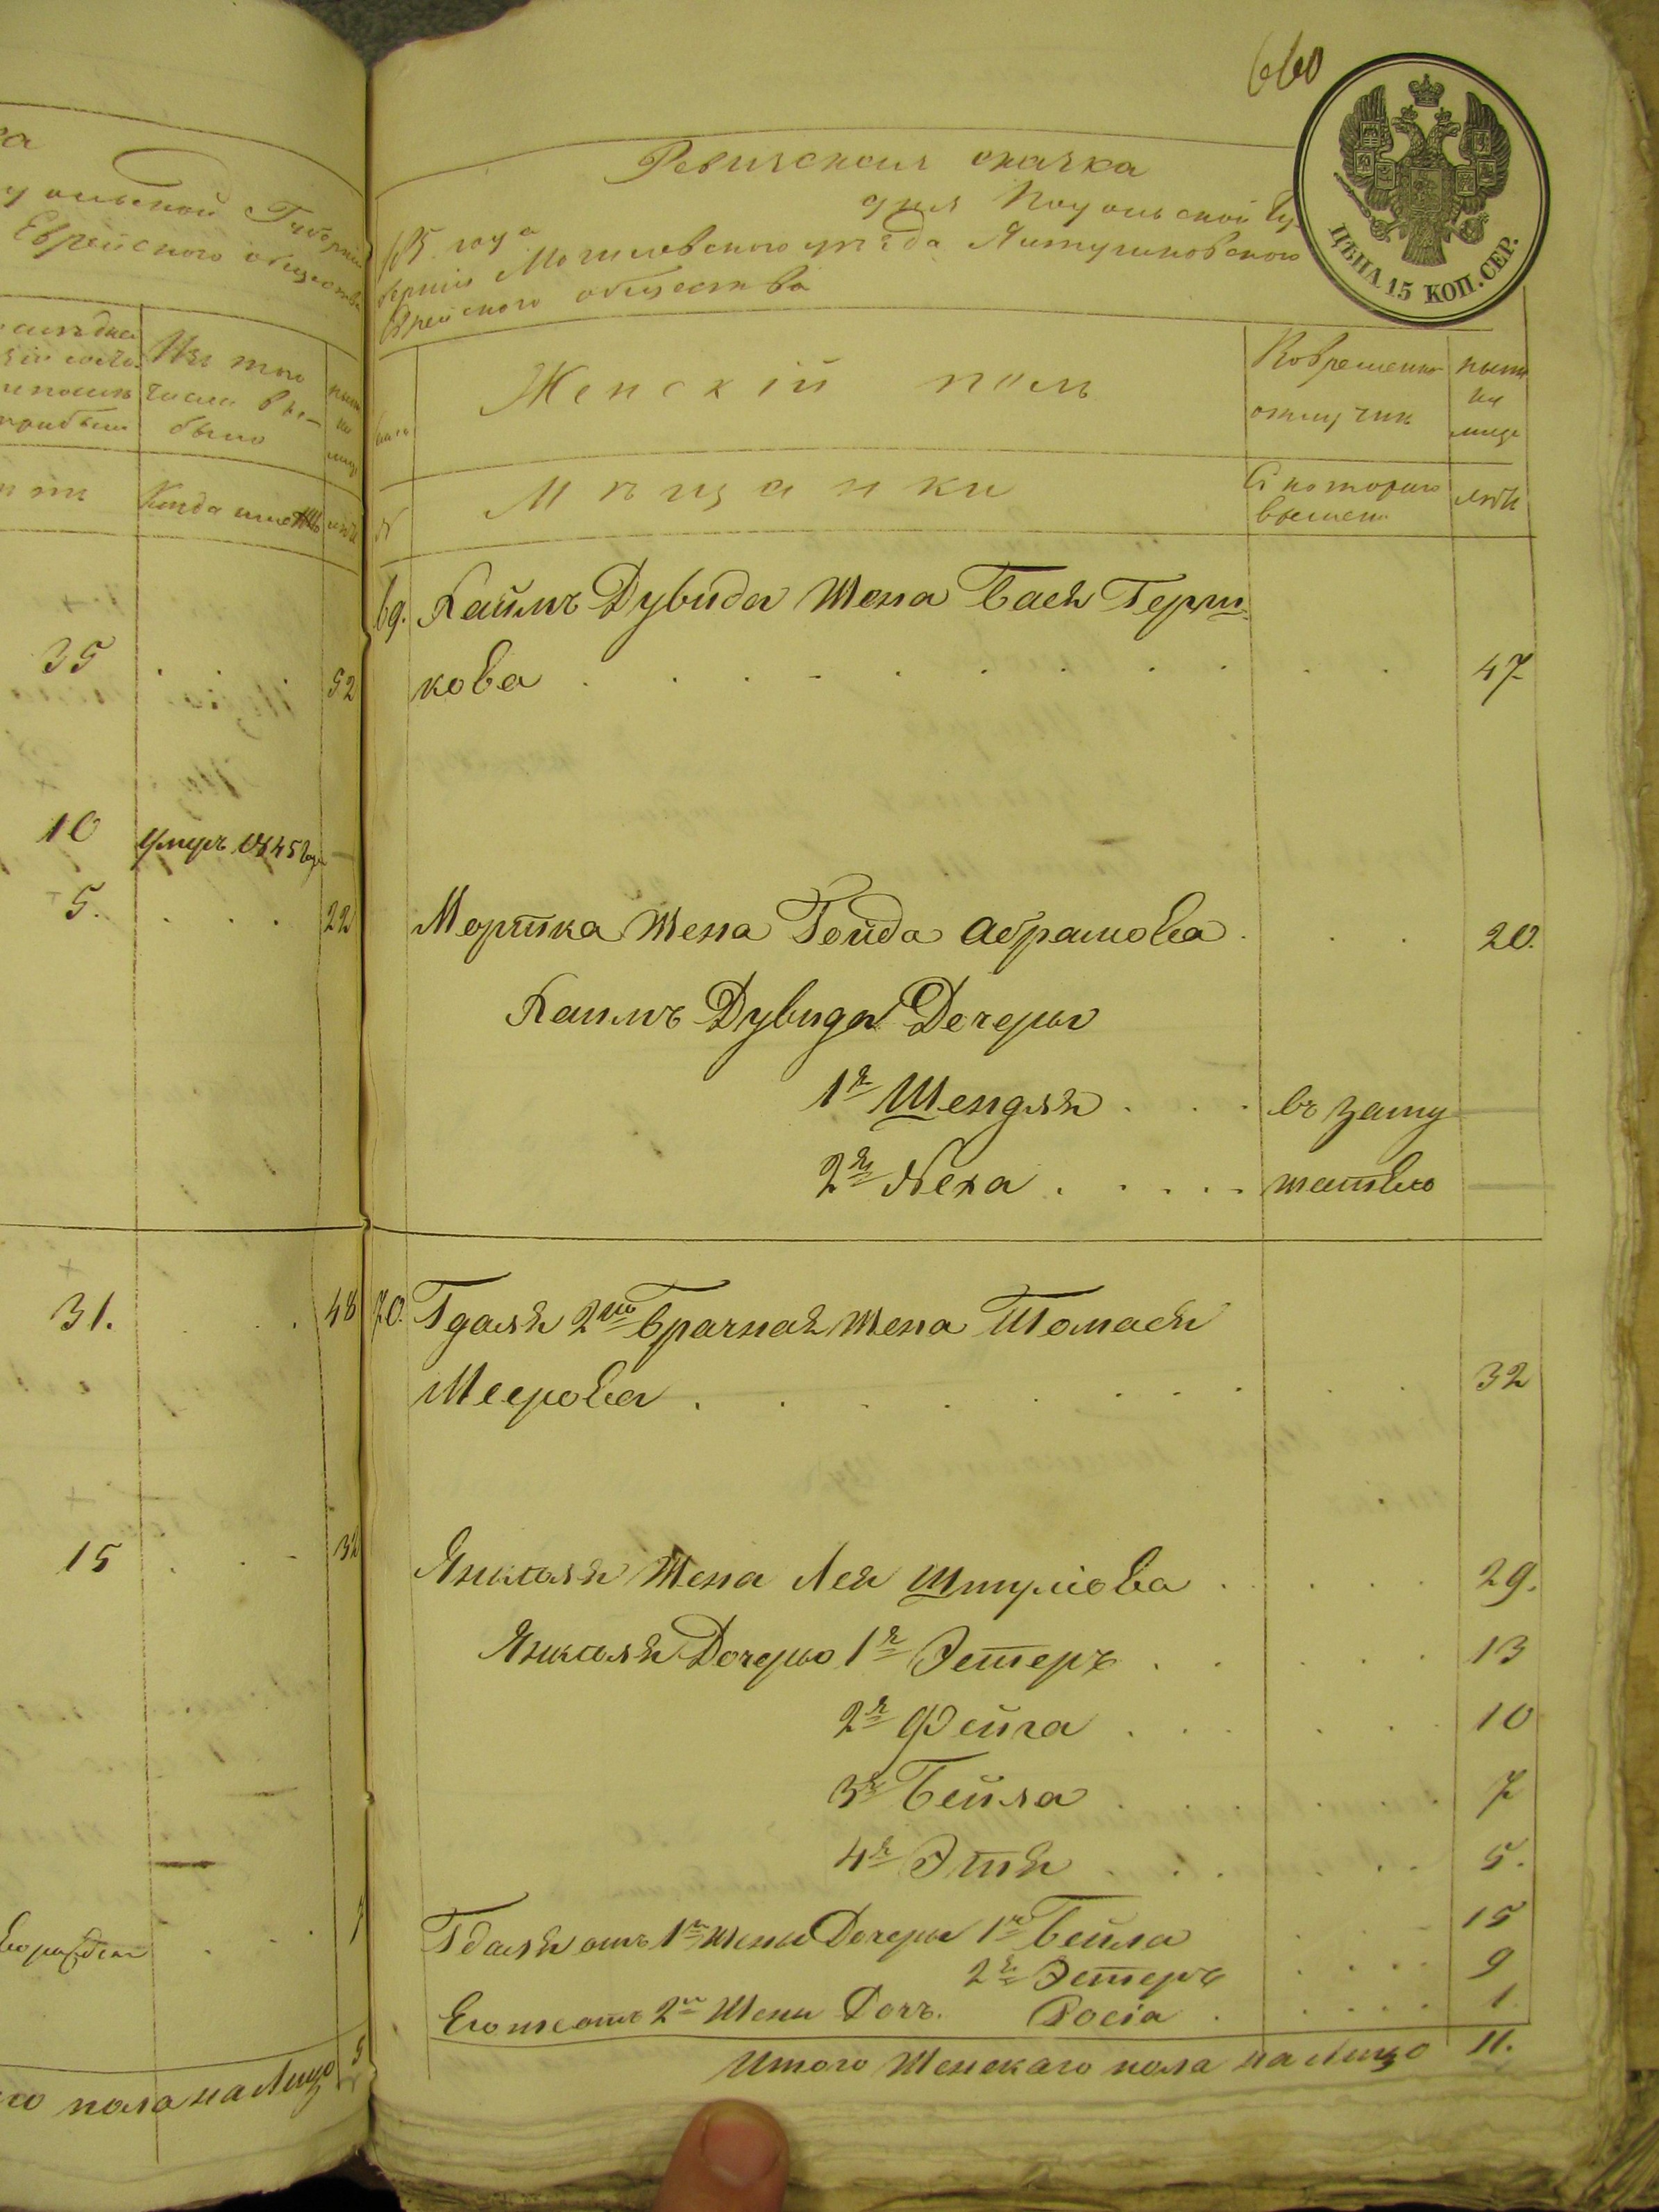 уольской Губерніи
Еврейскаго общества
Изъ того
числа вы-
было
Когда именно
35 . . . 52
10 умеръ 1845 года —
5. . . . 22
31. . . . 48
15 . . . 32
. . . 7
5
го пола на лицо
660
ЦѢНА 15 КОП. СЕР.
Ревизская сказка
года дня Подольской Гу
берніи Могилевского уѣзда Ялтушковского
Еврейского общества
Женскій полъ
Во временной
отлучкѣ
ныне
на
лицо
№
Мѣщанки
Съ котораго
времени
лѣта
69. Хаимъ Дувида жена Бася Герш-
кова . . . . . . . . . 47
Мошка жена Гойда Абрамова . . . 20.
Хаимъ Дувида Дочеры
1я Шендля . . . въ заму
2я Неха . . . . . жествѣ
70. Гдаля 2го брачная жена Шомася
Меерова . . . . . . . . 32
Янкеля жена Лея Шмулiова . . . . 29.
Янкеля Дочеры 1я Эстеръ . . . . . 13
2я Фейга . . . . . 10
3я Бейла . . . . . 7
4я Этя . . . . . 5.
Гдаля отъ 1й жены Дочеры 1я Бейла . . 15
2я Эстеръ . . . . 9
Его же отъ 2й жены Дочь. Росiа . . . . . 1
Итого Женскаго пола на лицо 11.